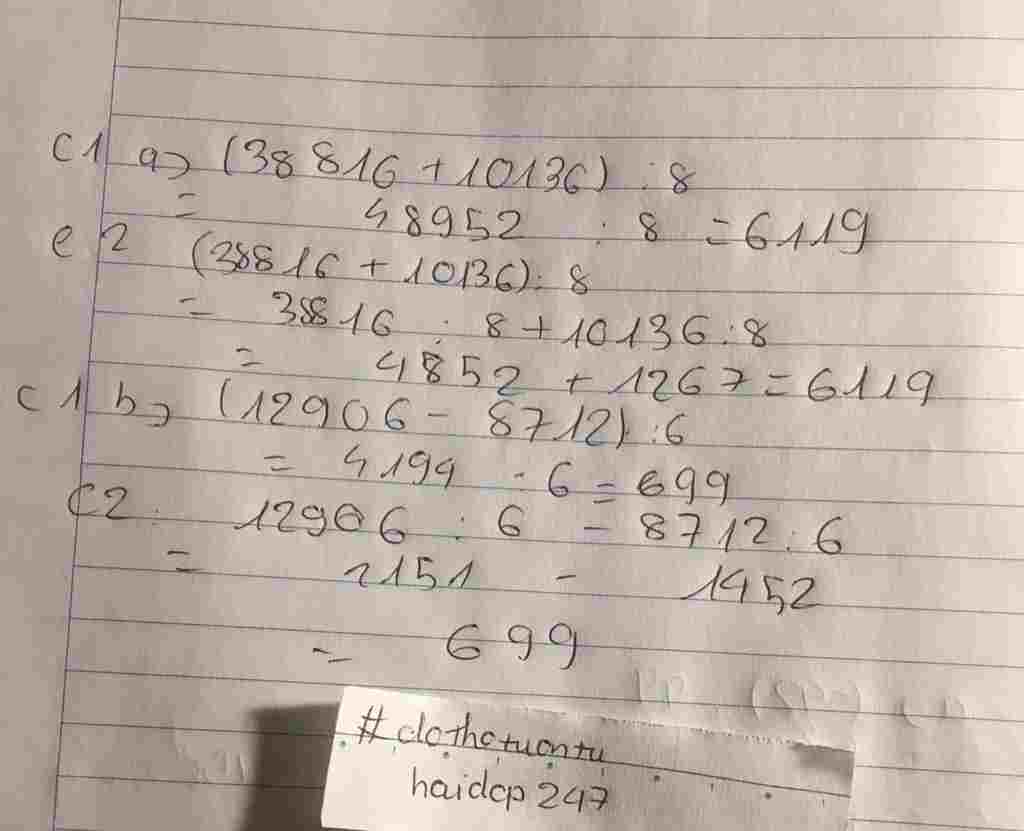 C1 a) (38816 + 10136) : 8
= 48952 : 8 = 6119
C2 (38816 + 10136) : 8
= 38816 : 8 + 10136 : 8
= 4852 + 1267 = 6119
C1 b) (12906 - 8712) : 6
= 4194 : 6 = 699
C2. 12906 : 6 - 8712 : 6
= 2151 - 1452
= 699
#dothotuontu
haidcp 247